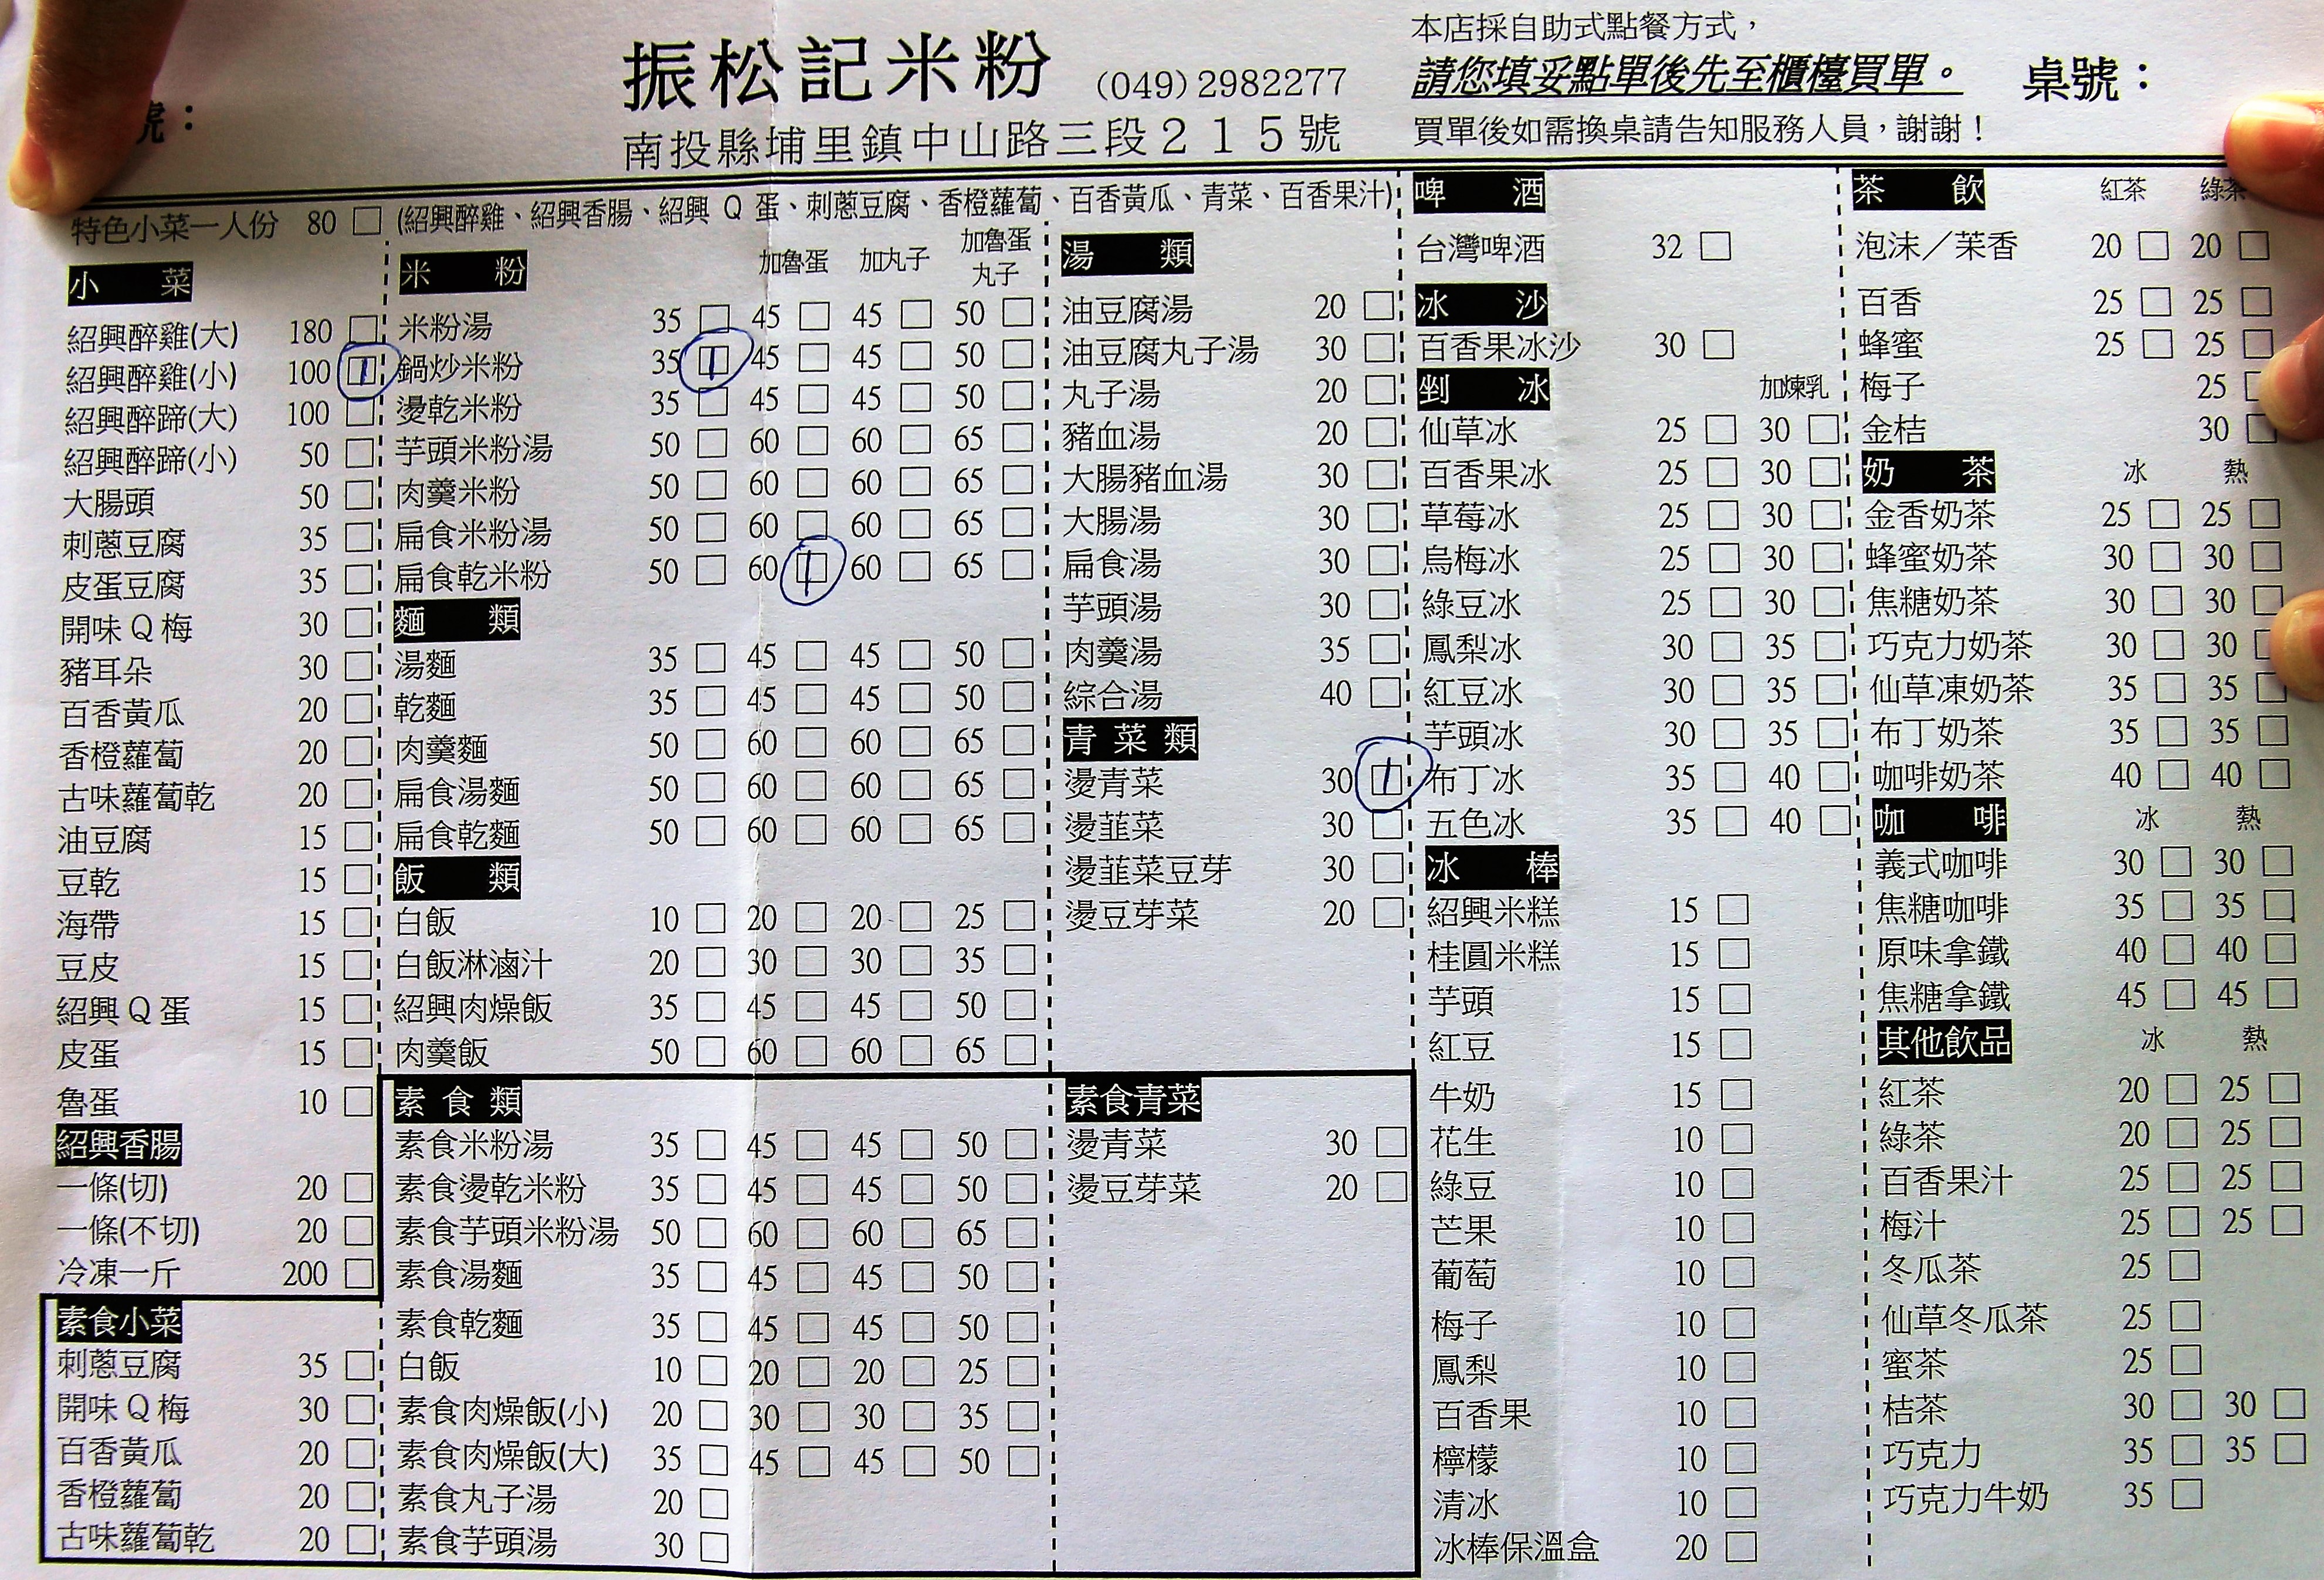 振松記米粉 (049)2982277
南投縣埔里鎮中山路三段215號
本店採自助式點餐方式，
請您填妥點單後先至櫃檯買單。
買單後如需換桌請告知服務人員，謝謝！
桌號：
號：
特色小菜一人份 80 □ (紹興醉雞、紹興香腸、紹興 Q 蛋、刺蔥豆腐、香橙蘿蔔、百香黃瓜、青菜、百香果汁)
小菜
紹興醉雞(大) 180 □
紹興醉雞(小) 100 □ 1
紹興醉蹄(大) 100 □
紹興醉蹄(小) 50 □
大腸頭 50 □
刺蔥豆腐 35 □
皮蛋豆腐 35 □
開味Q梅 30 □
豬耳朵 30 □
百香黃瓜 20 □
香橙蘿蔔 20 □
古味蘿蔔乾 20 □
油豆腐 15 □
豆乾 15 □
海帶 15 □
豆皮 15 □
紹興Q蛋 15 □
皮蛋 15 □
魯蛋 10 □
紹興香腸
一條(切) 20 □
一條(不切) 20 □
冷凍一斤 200 □
素食小菜
刺蔥豆腐 35 □
開味Q梅 30 □
百香黃瓜 20 □
香橙蘿蔔 20 □
古味蘿蔔乾 20 □
米粉 加魯蛋 加丸子 加魯蛋丸子
米粉湯 35 □ 45 □ 45 □ 50 □
鍋炒米粉 35 □ 1 45 □ 45 □ 50 □
燙乾米粉 35 □ 45 □ 45 □ 50 □
芋頭米粉湯 50 □ 60 □ 60 □ 65 □
肉羹米粉 50 □ 60 □ 60 □ 65 □
扁食米粉湯 50 □ 60 □ 60 □ 65 □
扁食乾米粉 50 □ 60 □ 1 60 □ 65 □
麵類
湯麵 35 □ 45 □ 45 □ 50 □
乾麵 35 □ 45 □ 45 □ 50 □
肉羹麵 50 □ 60 □ 60 □ 65 □
扁食湯麵 50 □ 60 □ 60 □ 65 □
扁食乾麵 50 □ 60 □ 60 □ 65 □
飯類
白飯 10 □ 20 □ 20 □ 25 □
白飯淋滷汁 20 □ 30 □ 30 □ 35 □
紹興肉燥飯 35 □ 45 □ 45 □ 50 □
肉羹飯 50 □ 60 □ 60 □ 65 □
素食類
素食米粉湯 35 □ 45 □ 45 □ 50 □
素食燙乾米粉 35 □ 45 □ 45 □ 50 □
素食芋頭米粉湯 50 □ 60 □ 60 □ 65 □
素食湯麵 35 □ 45 □ 45 □ 50 □
素食乾麵 35 □ 45 □ 45 □ 50 □
白飯 10 □ 20 □ 20 □ 25 □
素食肉燥飯(小) 20 □ 30 □ 30 □ 35 □
素食肉燥飯(大) 35 □ 45 □ 45 □ 50 □
素食丸子湯 20 □
素食芋頭湯 30 □
湯類
油豆腐湯 20 □
油豆腐丸子湯 30 □
丸子湯 20 □
豬血湯 20 □
大腸豬血湯 30 □
大腸湯 30 □
扁食湯 30 □
芋頭湯 30 □
肉羹湯 35 □
綜合湯 40 □
青菜類
燙青菜 30 □ 1
燙韮菜 30 □
燙韮菜豆芽 30 □
燙豆芽菜 20 □
素食青菜
燙青菜 30 □
燙豆芽菜 20 □
啤酒
台灣啤酒 32 □
冰沙
百香果冰沙 30 □
剉冰 加煉乳
仙草冰 25 □ 30 □
百香果冰 25 □ 30 □
草莓冰 25 □ 30 □
烏梅冰 25 □ 30 □
綠豆冰 25 □ 30 □
鳳梨冰 30 □ 35 □
紅豆冰 30 □ 35 □
芋頭冰 30 □ 35 □
布丁冰 35 □ 40 □
五色冰 35 □ 40 □
冰棒
紹興米糕 15 □
桂圓米糕 15 □
芋頭 15 □
紅豆 15 □
牛奶 15 □
花生 10 □
綠豆 10 □
芒果 10 □
葡萄 10 □
梅子 10 □
鳳梨 10 □
百香果 10 □
檸檬 10 □
清冰 10 □
冰棒保溫盒 20 □
茶飲 紅茶 綠茶
泡沫／茉香 20 □ 20 □
百香 25 □ 25 □
蜂蜜 25 □ 25 □
梅子 25 □
金桔 30 □
奶茶 冰 熱
金香奶茶 25 □ 25 □
蜂蜜奶茶 30 □ 30 □
焦糖奶茶 30 □ 30 □
巧克力奶茶 30 □ 30 □
仙草凍奶茶 35 □ 35 □
布丁奶茶 35 □ 35 □
咖啡奶茶 40 □ 40 □
咖啡 冰 熱
義式咖啡 30 □ 30 □
焦糖咖啡 35 □ 35 □
原味拿鐵 40 □ 40 □
焦糖拿鐵 45 □ 45 □
其他飲品 冰 熱
紅茶 20 □ 25 □
綠茶 20 □ 25 □
百香果汁 25 □ 25 □
梅汁 25 □ 25 □
冬瓜茶 25 □
仙草冬瓜茶 25 □
蜜茶 25 □
桔茶 30 □ 30 □
巧克力 35 □ 35 □
巧克力牛奶 35 □